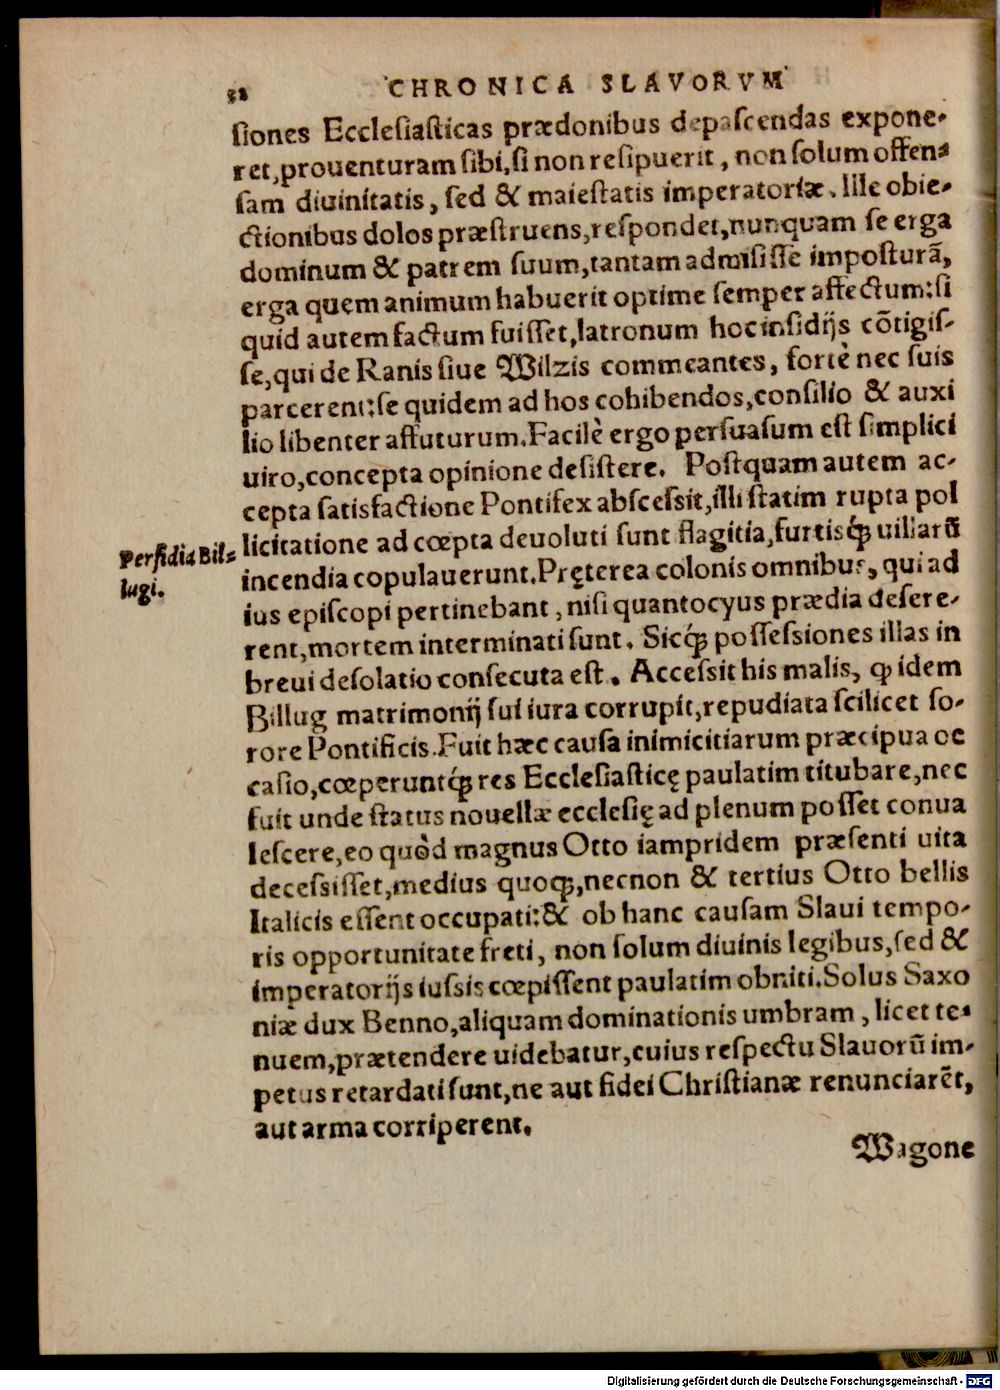 32 CHRONICA SLAVORVM
siones Ecclesiasticas prædonibus depascendas expone-
ret, prouenturam sibi, si non resipuerit, non solum offen-
sam diuinitatis, sed & maiestatis imperatoriæ. Ille obie-
ctionibus dolos præstruens, respondet, nunquam se erga
dominum & patrem suum, tantam admisisse imposturã,
erga quem animum habuerit optime semper affectum: si
quid autem factum fuisset, latronum hoc insidijs cõtigis-
se, qui de Ranis siue Wilzis commeantes, fortè nec suis
parcerent: se quidem ad hos cohibendos, consilio & auxi
lio libenter affuturum. Facilè ergo persuasum est simplici
uiro, concepta opinione desistere. Postquam autem ac-
cepta satisfactione Pontifex abscessit, illi statim rupta pol
licitatione ad cœpta deuoluti sunt flagitia, furtisq́; uillarũ
Perfidia Bil-
lugi.
incendia copulauerunt. Pręterea colonis omnibus, qui ad
ius episcopi pertinebant, nisi quantocyus prædia desere-
rent, mortem interminati sunt. Sicq́; possessiones illas in
breui desolatio consecuta est. Accessit his malis, ꝙ idem
Billug matrimonij sui iura corrupit, repudiata scilicet so-
rore Pontificis. Fuit hæc causa inimicitiarum præcipua oc
casio, cœperuntq́; res Ecclesiasticę paulatim titubare, nec
fuit unde status nouellæ ecclesię ad plenum posset conua
lescere, eo quòd magnus Otto iampridem præsenti uita
decessisset, medius quoq;, necnon & tertius Otto bellis
Italicis essent occupati: & ob hanc causam Slaui tempo-
ris opportunitate freti, non solum diuinis legibus, sed &
imperatorijs iussis cœpissent paulatim obniti. Solus Saxo
niæ dux Benno, aliquam dominationis umbram, licet te-
nuem, prætendere uidebatur, cuius respectu Slauorũ im-
petus retardati sunt, ne aut fidei Christianæ renunciarẽt,
aut arma corriperent.
Wagone
Digitalisierung gefördert durch die Deutsche Forschungsgemeinschaft - DFG